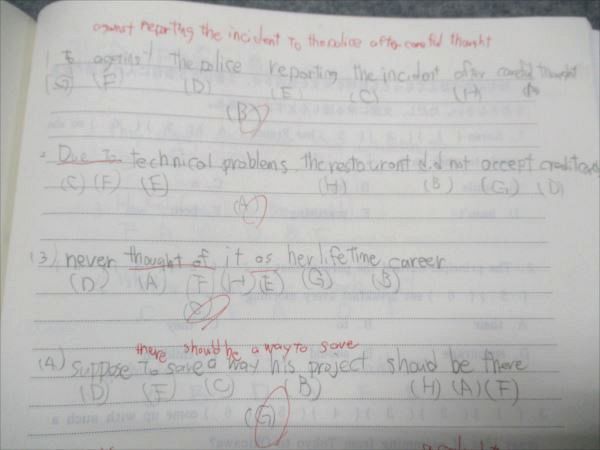 against reporting the incident to the police after careful thought
1 to against the police reporting the incident after careful thought
(G) (F) (D) (E) (C) (H)
(B)
2 Due to technical problems, the restaurant did not accept credit
(C) (F) (E) (H) (B) (G) (D)
(A)
(3) never thought of it as her lifetime career
(D) (A) (F) (H) (E) (G) (B)
there should be a way to save
(4) suppose to save a way his project should be there
(D) (E) (C) (B) (H) (A) (F)
(G)